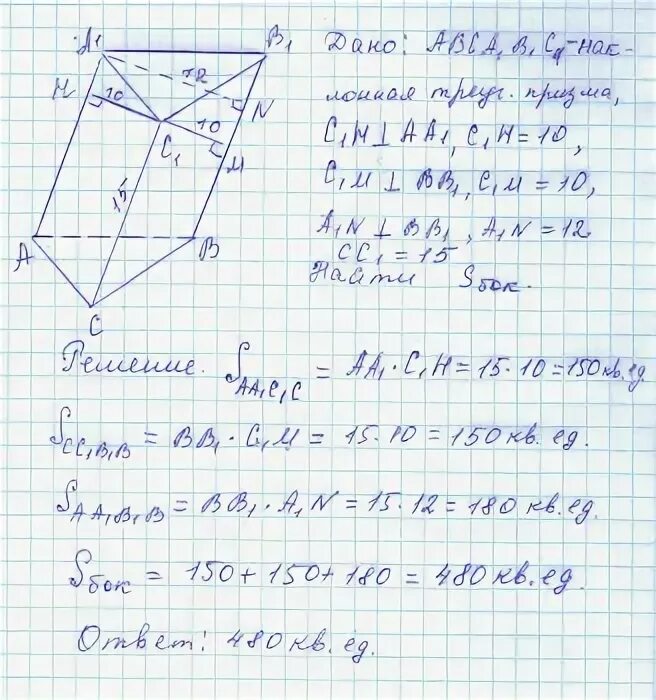 A₁
B₁
H
12
10
N
10
C₁
M
15
A
B
C
Дано: ABCA₁B₁C₁-нак-
лонная треуг. призма,
C₁H⊥AA₁, C₁H=10,
C₁M ⊥ BB₁, C₁M = 10,
A₁N ⊥ BB₁, A₁N = 12
CC₁ = 15
Найти Sбок.
Решение. S_AA₁C₁C = AA₁·C₁H = 15·10 = 150 кв.ед
S_CC₁B₁B = BB₁·C₁M = 15·10 = 150 кв. ед.
S_AA₁B₁B = BB₁·A₁N = 15·12 = 180 кв.ед.
Sбок = 150 + 150 + 180 = 480 кв.ед.
Ответ: 480 кв. ед.